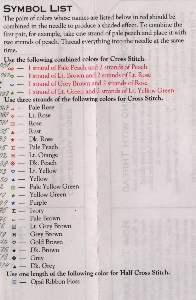 SYMBOL LIST
The pairs of colors whose names are listed below in red should be
combined in the needle to produce a shaded effect. To combine the
first pair, for example, take one strand of pale peach and place it with
two strands of peach. Thread everything into the needle at the same
time.
Use the following combined colors for Cross Stitch.
1 strand of Pale Peach and 2 strands of Peach
1 strand of Lt. Brown and 2 strands of Lt. Rose
1 strand of Grey Brown and 2 strands of Rose
1 strand of Lt. Green and 2 strands of Lt. Yellow Green
Use three strands of the following colors for Cross Stitch.
Pale Rose
Lt. Rose
Rose
Rust
Dk. Rose
Pale Peach
Lt. Orange
Dk. Peach
Lt. Yellow
Yellow
Pale Yellow Green
Yellow Green
Purple
Ivory
Pale Brown
Lt. Grey Brown
Grey Brown
Gold Brown
Dk. Brown
Grey
Dk. Grey
Use one length of the following color for Half Cross Stitch.
Opal Ribbon Floss